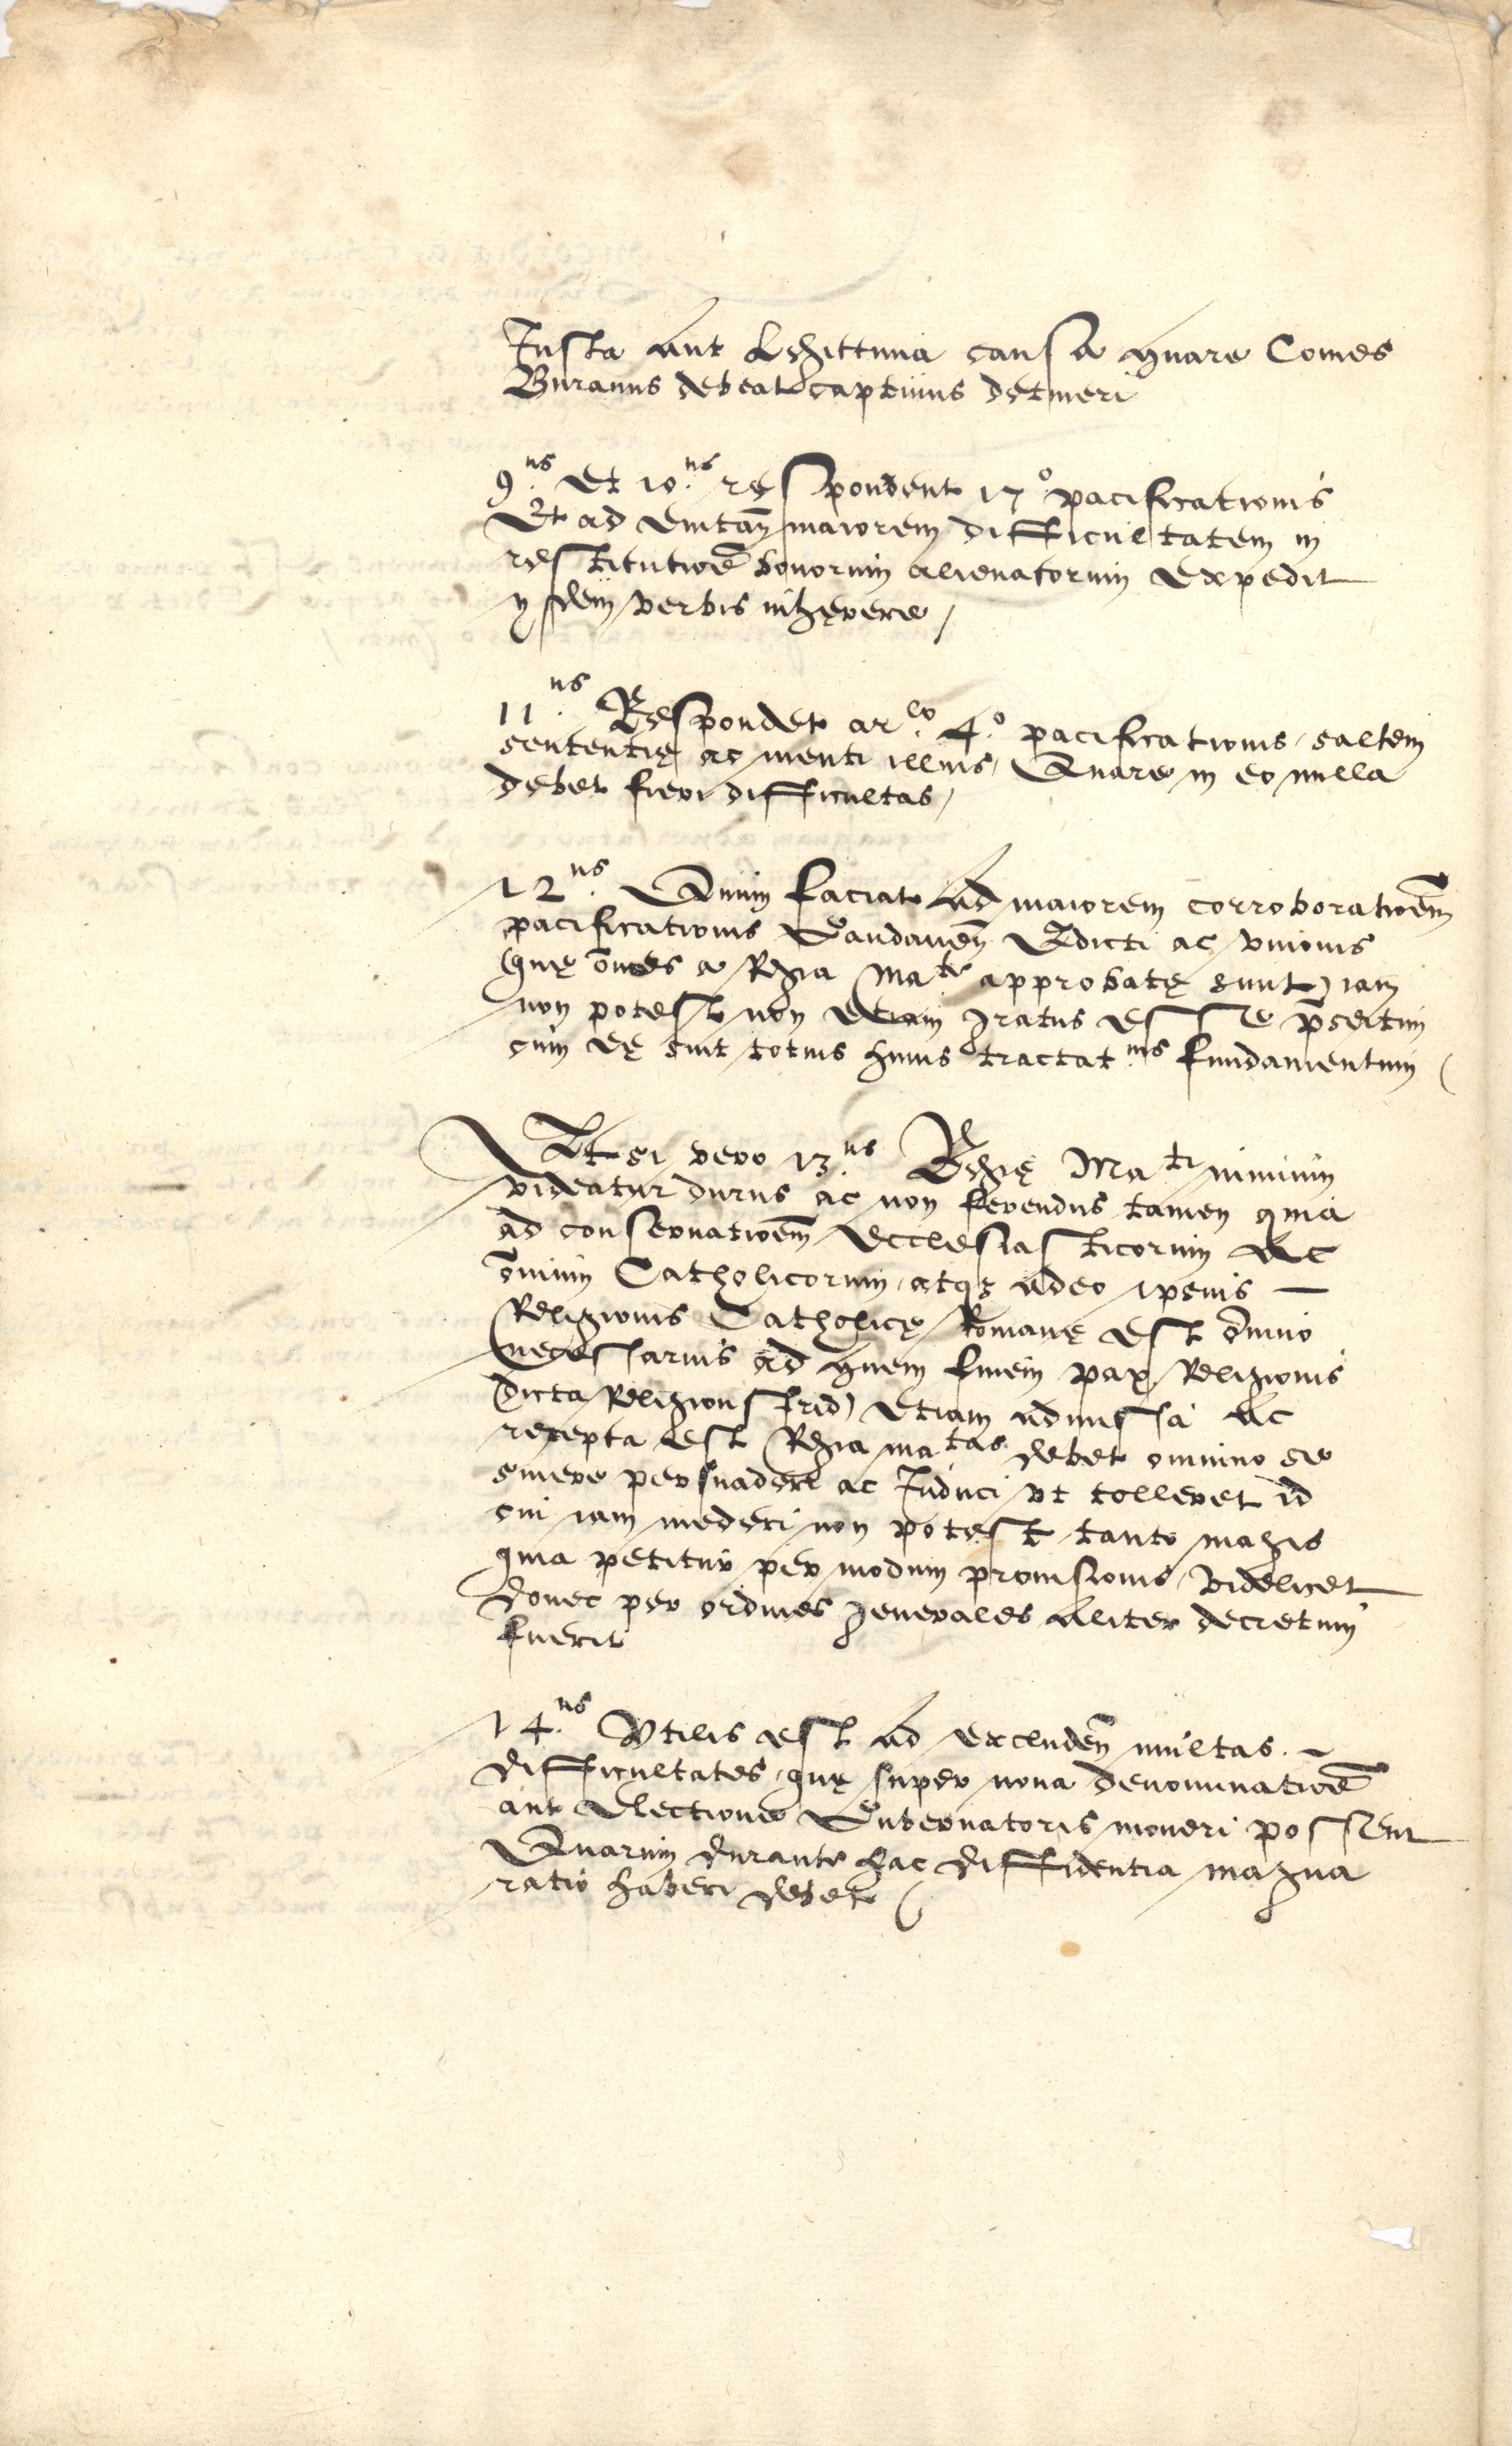 Justa aut Legittima causa quare Comes
Buranus debeat captiuus detineri
9.us Et 10.us respondent 17.o pacificationis
Et ad euitan̄ maiorem difficultatem in
restitutioē bonorum alienatorum Expedit
ijsdem verbis inhęrere /
11.us Respondet ar.lo 4.o pacificationis, saltem
sententię ac menti illius, Quare in eo nulla
debet fieri difficultas /
12.us Quum faciat ad maiorem corroboratioēm
pacificationis Gandauen̄ Edicti ac vnionis
(quę om̄es a Regia Ma.te approbatę sunt) iam
non potest non etiam gratus esse p̄sertim
cum eę sint totius huius tractat.us fundamentum (
Et si vero 13.us Regię Ma.ti nimium
videatur durus ac non ferendus tamen quia
ad conseruatioēm Ecclesiasticorum ac
om̄ium Catholicorum, atq3 adeo ipsius –
Religionis Catholicę Romanę est om̄ino
necessarius ad quem finem pax Religionis
(dicta Religions frid) Etiam admissa ac
recepta est Regia ma.tas debet omnino se
sinere persuaderi ac Induci vt tolleret id
cui iam mederi non potest tanto magis
quia petitur per modum prouisionis videlicet
donec per ordines generales aliter decretum
fuerit
14.us Vtilis est ad excluden̄ multas. ~
difficultates, quę super noua denominatioē
aut Electione Gubernatoris moueri possent
Quarum durante hac diffidentia magna
ratio haberi debet (